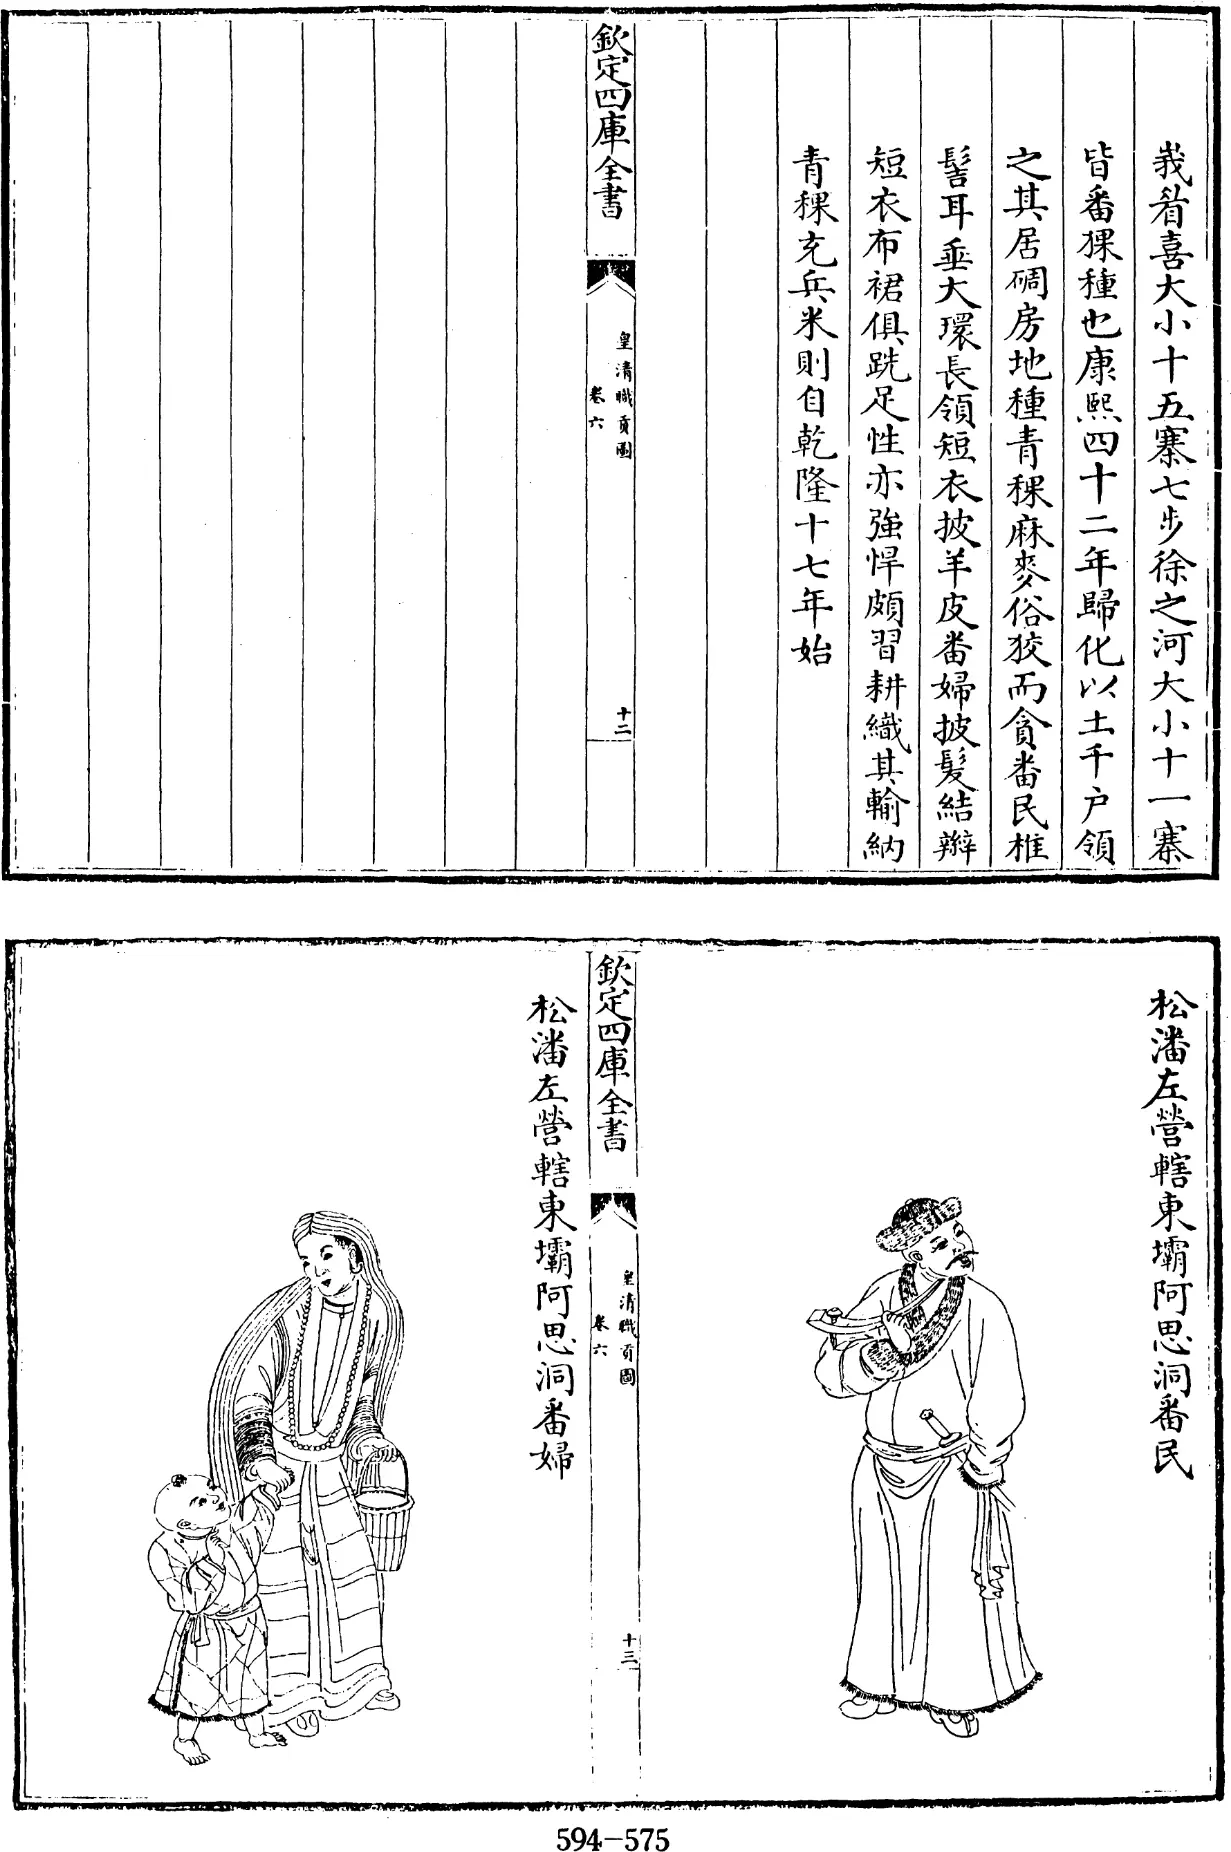 羙眷喜大小十五寨七步徐之河大小十一寨
皆番猓種也康熙四十二年歸化以土千户領
之其居碉房地種青稞麻麥俗狡而貪番民椎
髻耳垂大環長領短衣披羊皮番婦披髮結辮
短衣布裙俱跣足性亦強悍頗習耕織其輸納
青稞充兵米則自乾隆十七年始
欽定四庫全書
皇清職貢圖
卷六
十二
松潘左營轄東壩阿思洞番民
欽定四庫全書
皇清職貢圖
卷六
十三
松潘左營轄東壩阿思洞番婦
594-575